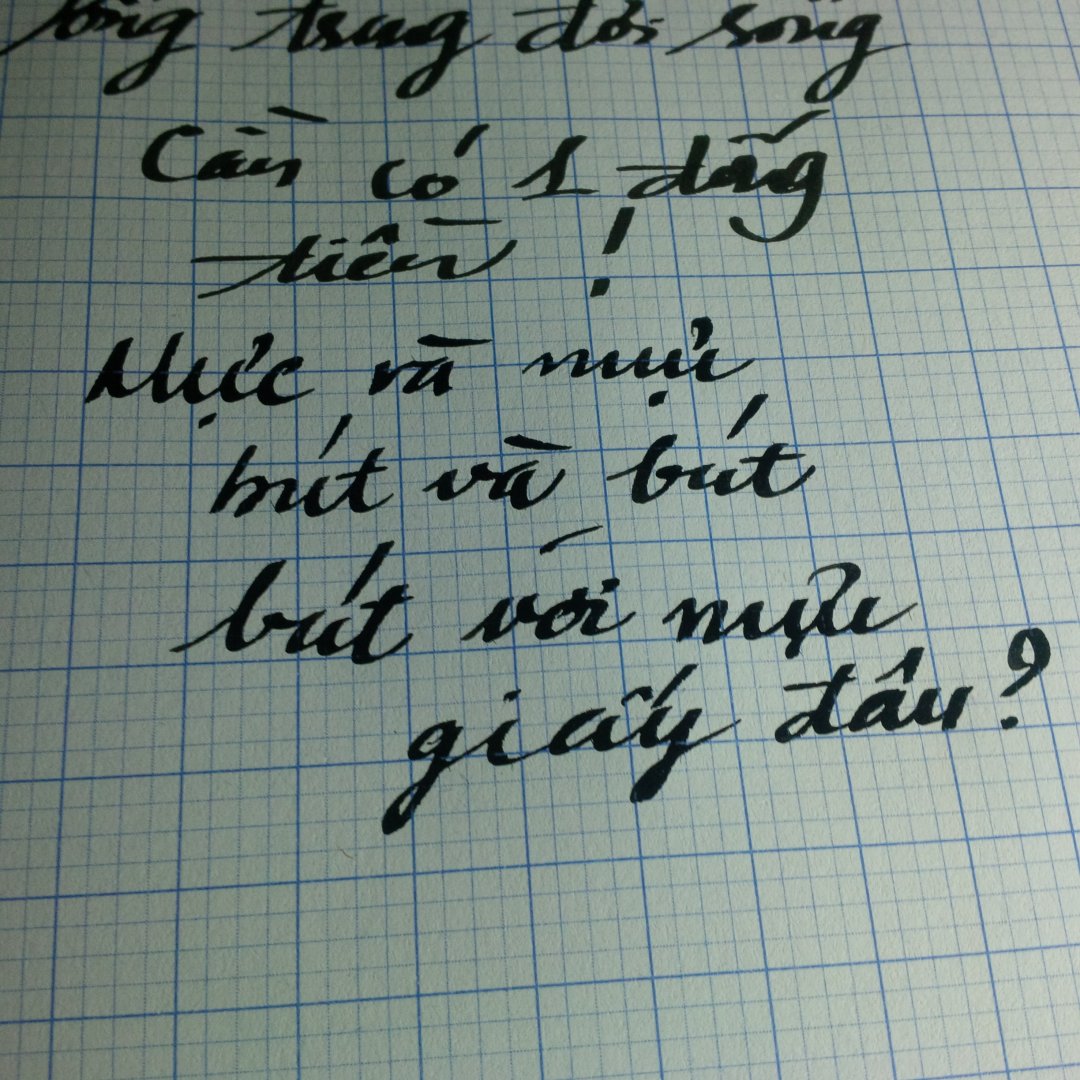 trung đời sống
Cần có 1 đấng
tiền !
Mực và mực
bút và bút
bút với mực
giấy đâu?